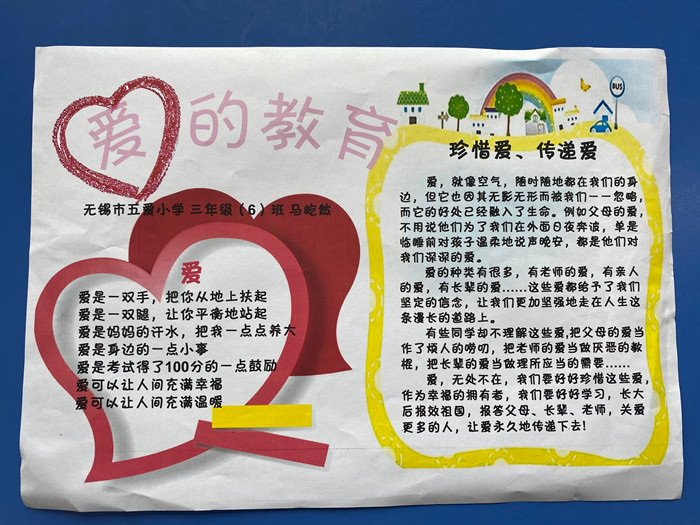 爱的教育
无锡市五爱小学 三年级（6）班 马屹然
爱
爱是一双手，把你从地上扶起
爱是一双腿，让你平衡地站起
爱是妈妈的汗水，把我一点点养大
爱是身边的一点小事
爱是考试得了100分的一点鼓励
爱可以让人间充满幸福
爱可以让人间充满温暖
BUS
珍惜爱、传递爱
爱，就像空气，随时随地都在我们的身
边，但它也因其无影无形而被我们一一忽略，
而它的好处已经融入了生命。例如父母的爱，
不用说他们为了我们在外面日夜奔波，单是
临睡前对孩子温柔地说声晚安，都是他们对
我们深深的爱。
爱的种类有很多，有老师的爱，有亲人
的爱，有长辈的爱……这些爱都给予了我们
坚定的信念，让我们更加坚强地走在人生这
条漫长的道路上。
有些同学却不理解这些爱,把父母的爱当
作了烦人的唠叨，把老师的爱当做厌恶的教
棍，把长辈的爱当做理所应当的需要……
爱，无处不在，我们要好好珍惜这些爱，
作为幸福的拥有者，我们要好好学习，长大
后报效祖国，报答父母、长辈、老师，关爱
更多的人，让爱永久地传递下去！